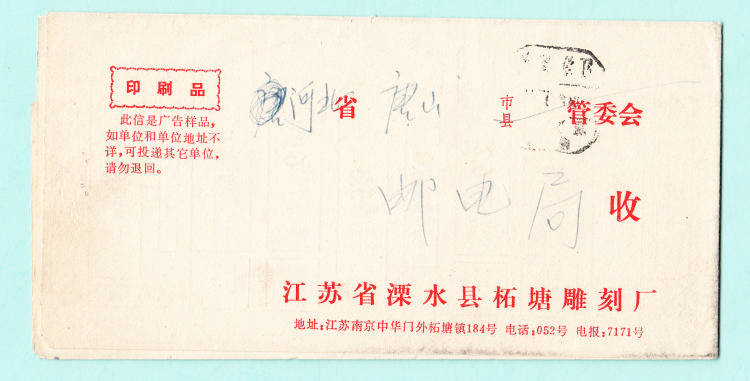 印刷品
此信是广告样品，
如单位和单位地址不
详，可投递其它单位，
请勿退回。
河北省 唐山 市县 管委会
邮电局 收
江苏省溧水县柘塘雕刻厂
地址：江苏南京中华门外柘塘镇184号 电话：052号 电报：7171号